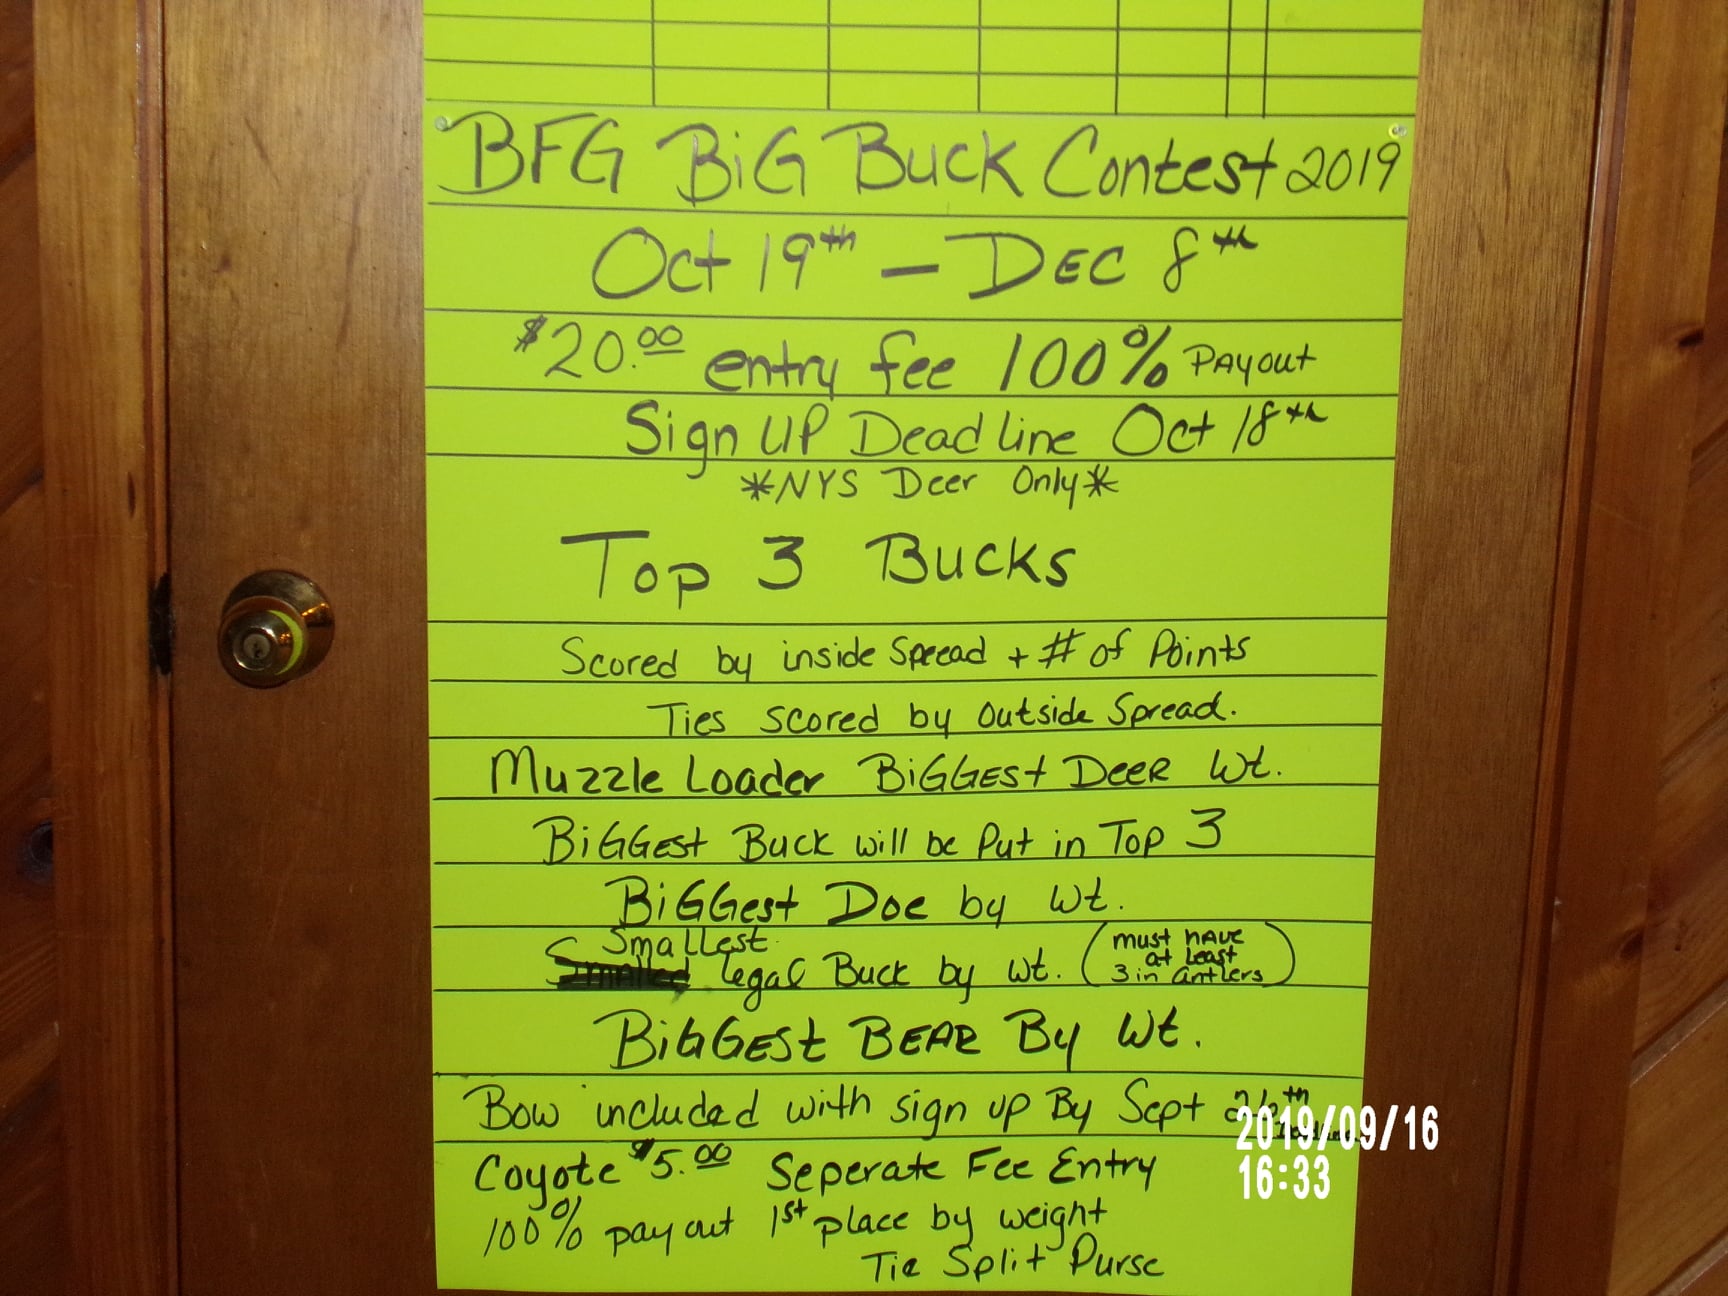 BFG BiG Buck Contest 2019
Oct 19th – DEC 8th
$20.00 entry fee 100% PAYout
Sign UP Deadline Oct 18th
*NYS Deer Only*
Top 3 Bucks
Scored by inside Spread + # of Points
Ties scored by outside Spread.
Muzzle Loader BiGGest Deer Wt.
BiGGest Buck will be Put in Top 3
BiGGest Doe by Wt.
Smallest legal Buck by wt. (must have at least 3 in antlers)
BiGGEST BEAR By Wt.
Bow included with sign up By Sept
Coyote $5.00 Seperate Fee Entry
100% pay out 1st place by weight
Tie Split Purse
2019/09/16
16:33